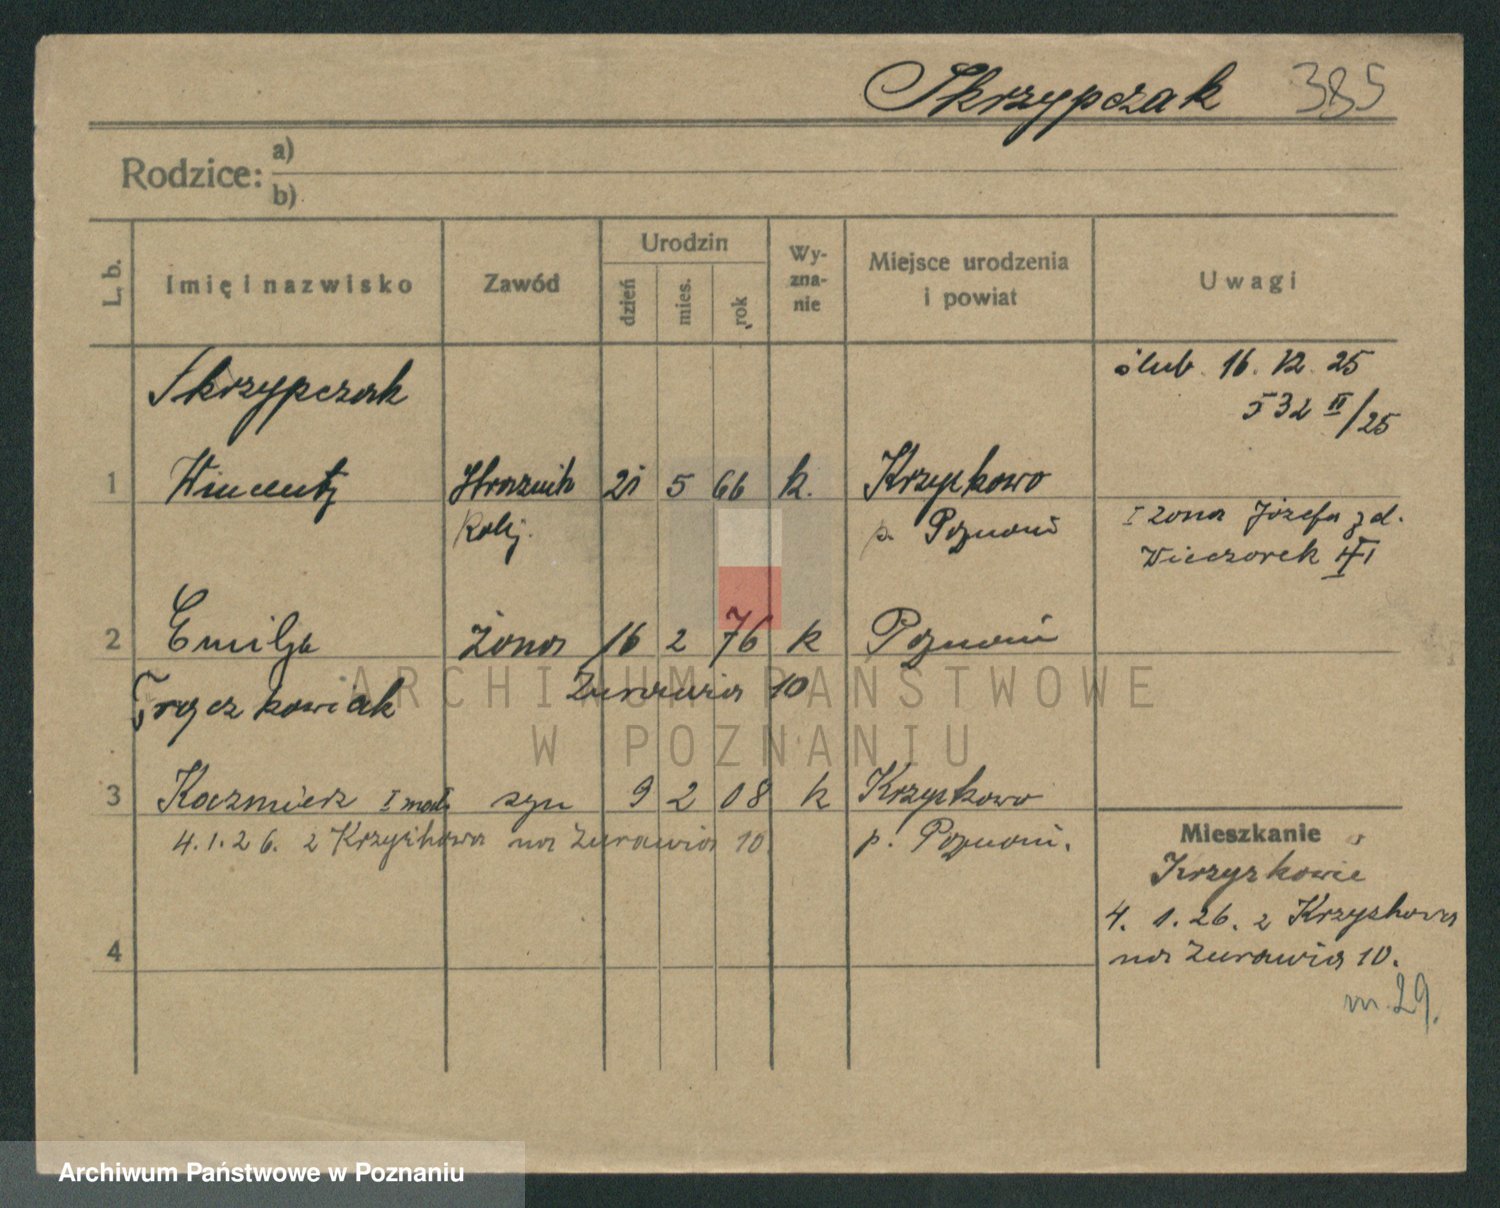 Skrzypczak 385
Rodzice: a)
b)
L. b. Imię i nazwisko Zawód Urodzin dzień mies. rok Wy-zna-nie Miejsce urodzenia i powiat Uwagi
Skrzypczak ślub 16. 12. 25
532 II/25
1 Wincenty Strażnik 21 5 66 k. Krzyżkowo
Kolej. p. Poznań I żona Józefa zd.
Wieczorek
2 Emilja żona 16 2 76 k Poznań
Żurawia 10
ARCHIWUM PAŃSTWOWE
W POZNANIU
3 Kazmierz I mał. syn 9 2 08 k Krzyżkowo
4.1.26. z Krzyżkowa na Żurawia 10 p. Poznań.
Mieszkanie
Krzyżkowie
4. 1. 26. z Krzyżkowa
4
na Żurawia 10.
m. 29.
Archiwum Państwowe w Poznaniu